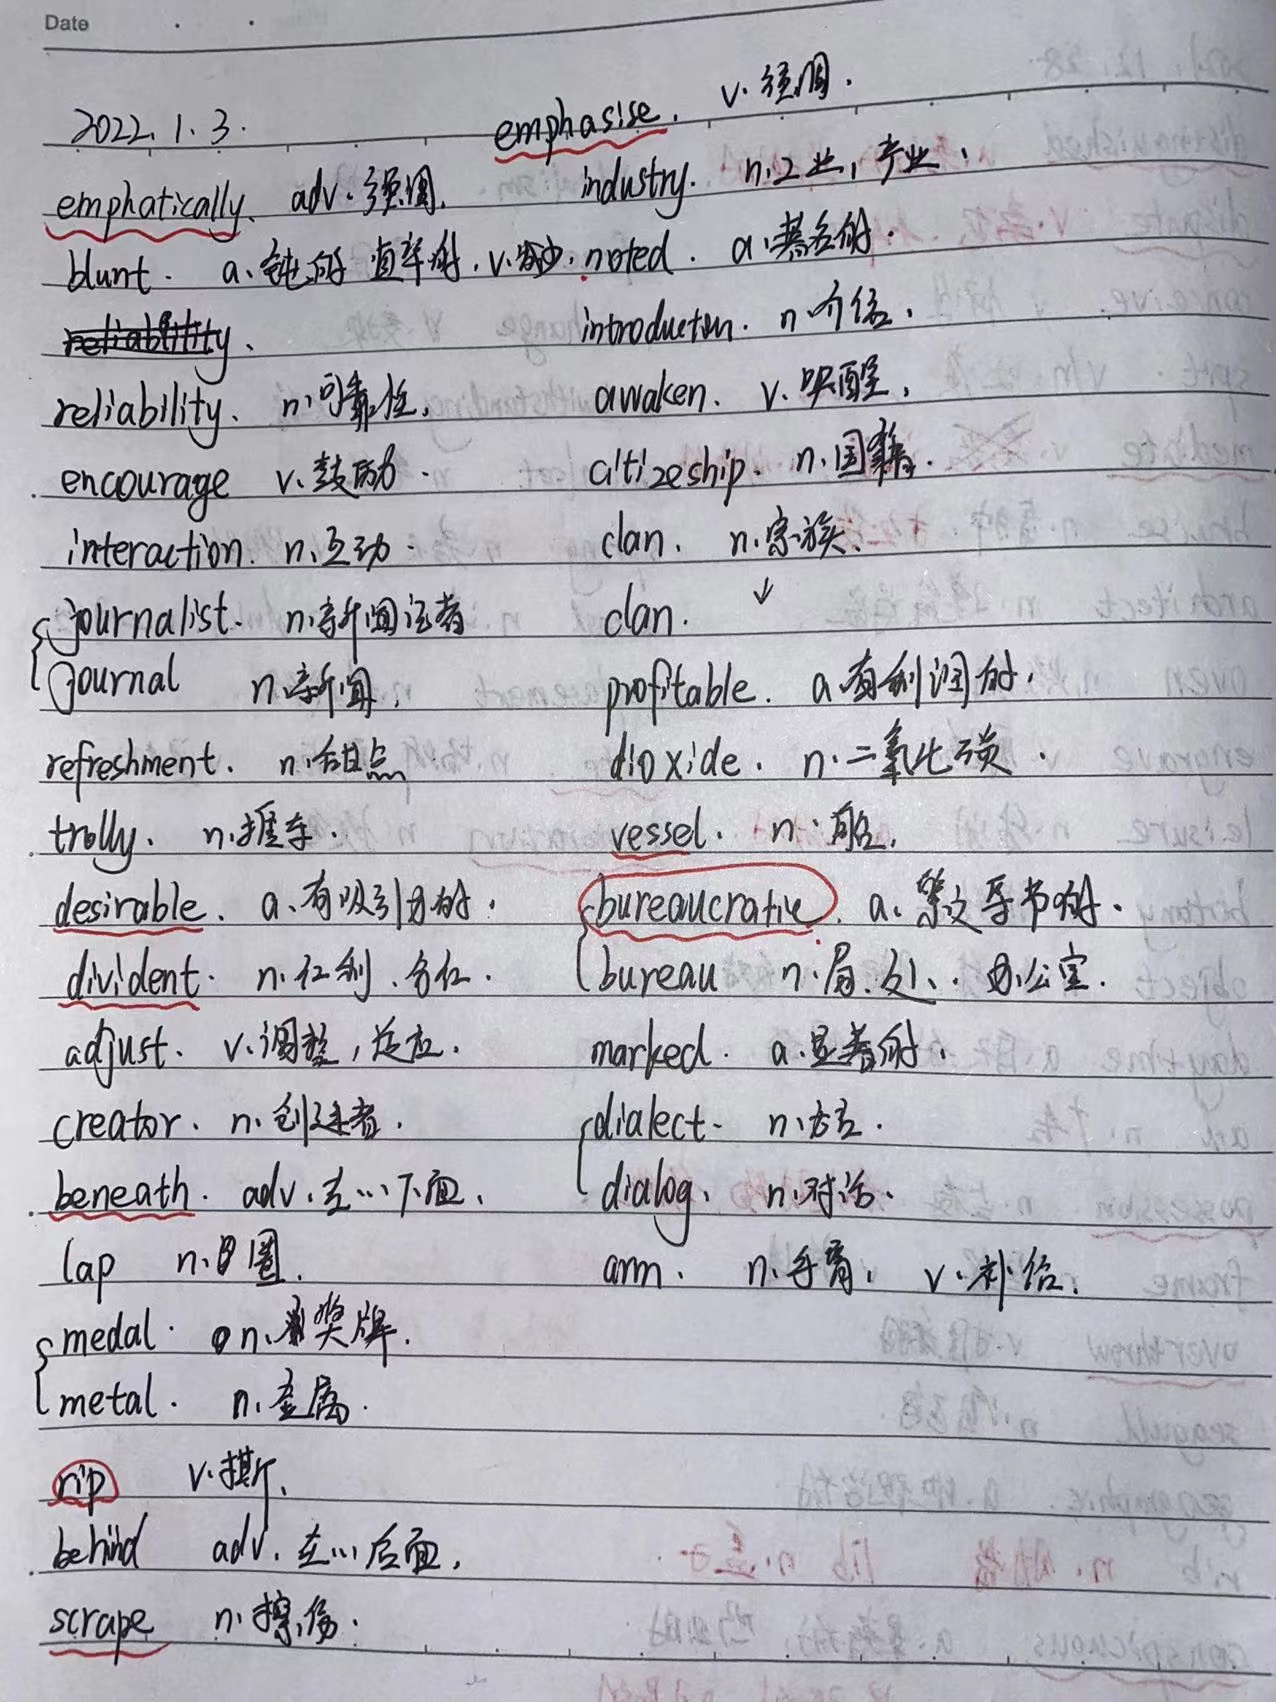 Date
2022.1.3.
emphatically. adv.强调.
blunt. a.钝的 直率的. v.减少.
reliability.
reliability. n.可靠性.
encourage v.鼓励.
interaction. n.互动.
journalist. n.新闻记者
journal n.新闻.
refreshment. n.甜点
trolly. n.推车.
desirable. a.有吸引力的.
divident. n.红利.分红.
adjust. v.调整,适应.
creator. n.创造者.
beneath. adv.在…下面.
lap n.圈.
medal. n.奖牌.
metal. n.金属.
rip v.撕.
behind adv.在…后面.
scrape n.擦伤.
emphasise. v.强调.
industry. n.工业,产业.
noted. a.著名的.
introduction. n.介绍.
awaken. v.唤醒.
citizeship. n.国籍.
clan. n.宗族.
clan.
profitable. a.有利润的.
dioxide. n.二氧化碳.
vessel. n.船.
bureaucratic. a.繁文导节的.
bureau n.局.处.办公室.
marked. a.显著的.
dialect. n.方言.
dialog. n.对话.
arm. n.手臂. v.补给.